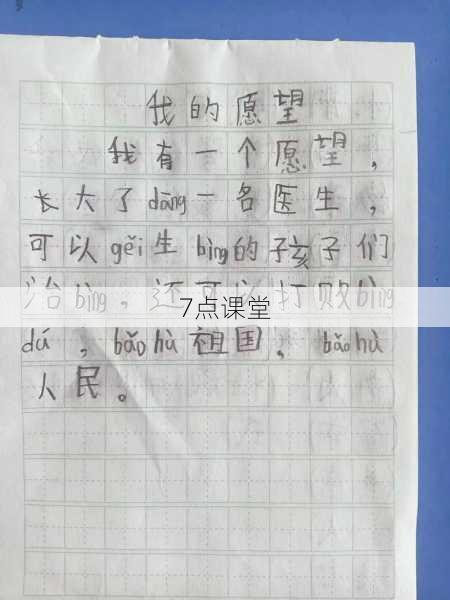 我的愿望
我有一个愿望，
长大了dāng一名医生，
可以gěi生bìng的孩子们
治bìng，还可以打败bìng
7点课堂
dú，bǎohù祖国，bǎohù
人民。